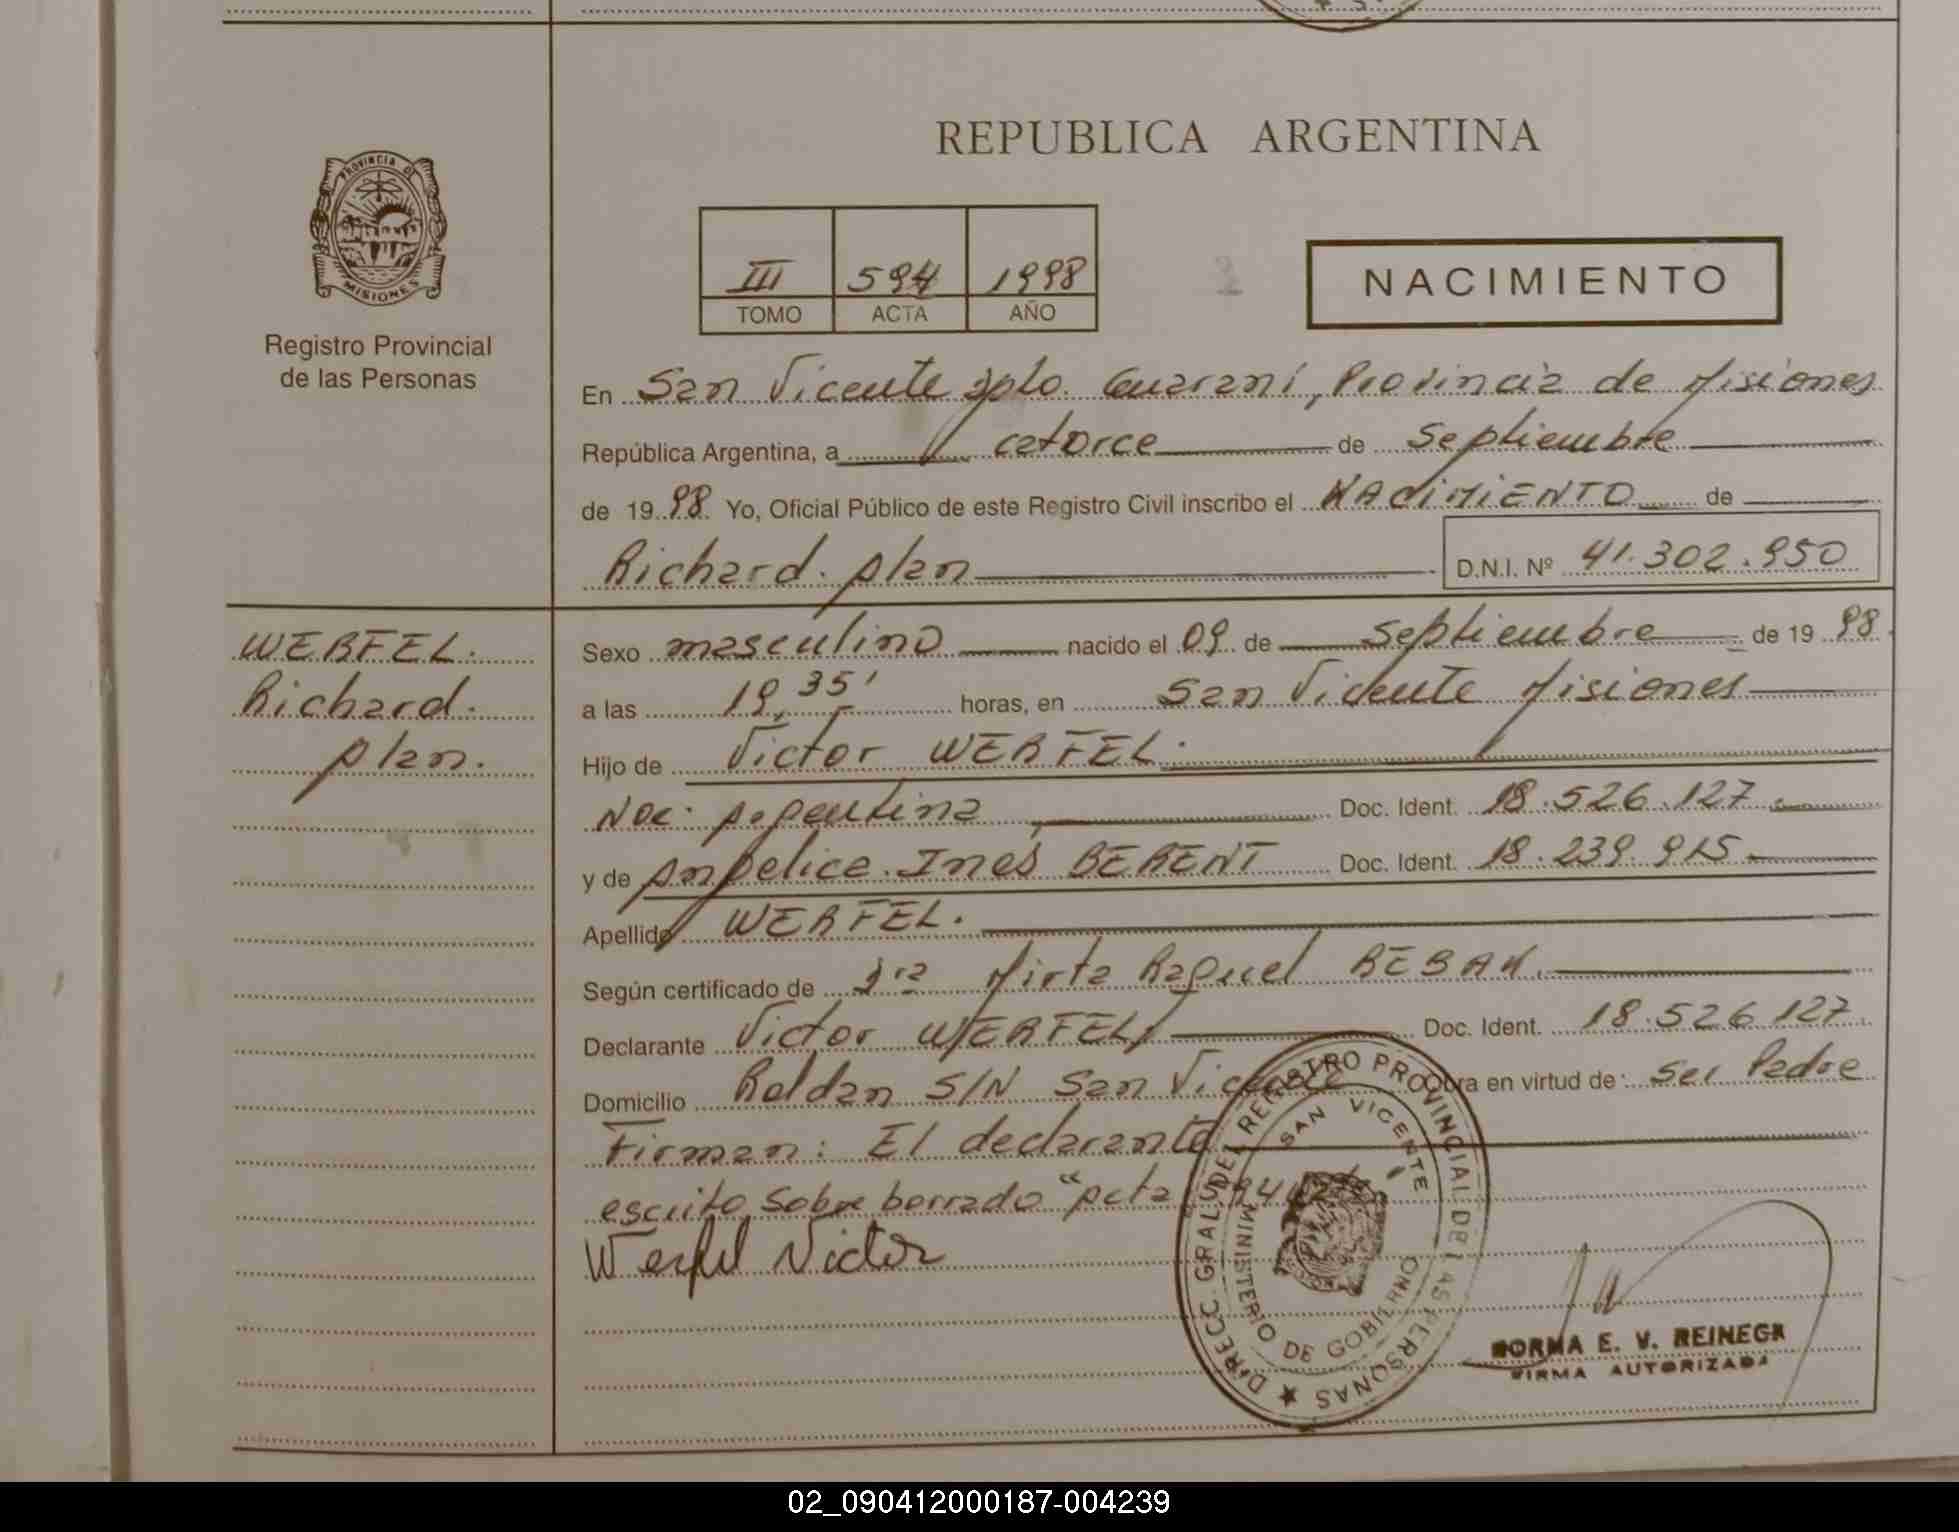 REPUBLICA ARGENTINA
PROVINCIA DE
MISIONES
Registro Provincial
de las Personas
III 594 1998
TOMO ACTA AÑO
NACIMIENTO
En San Vicente Dpto. Guaraní, Provincia de Misiones
República Argentina, a catorce de Septiembre
de 1998 Yo, Oficial Público de este Registro Civil inscribo el NACIMIENTO de
Richard Alan D.N.I. Nº 41.302.950
WERFEL.
Richard.
Alan.
Sexo masculino nacido el 09 de Septiembre de 1998
a las 19,35' horas, en San Vicente Misiones
Hijo de Victor WERFEL.
Nac. Argentina Doc. Ident. 18.526.127
y de Angelica Inés BERENT Doc. Ident. 18.239.915
Apellido WERFEL.
Según certificado de Dra Mirta Raquel
Declarante Victor WERFEL Doc. Ident. 18.526.127
Domicilio Roldan S/N San Vicente Obra en virtud de: Ser Padre
Firman: El declarante
escrito sobre borrado "Acta
Werfel Victor
DIRECC. GRAL. DEL REGISTRO PROVINCIAL DE LAS PERSONAS
SAN VICENTE
MINISTERIO DE GOBIERNO
NORMA E. V.
FIRMA AUTORIZADA
02_090412000187-004239